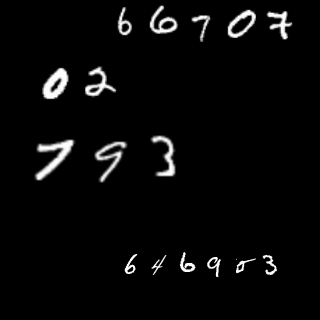 66707
02
793
646903